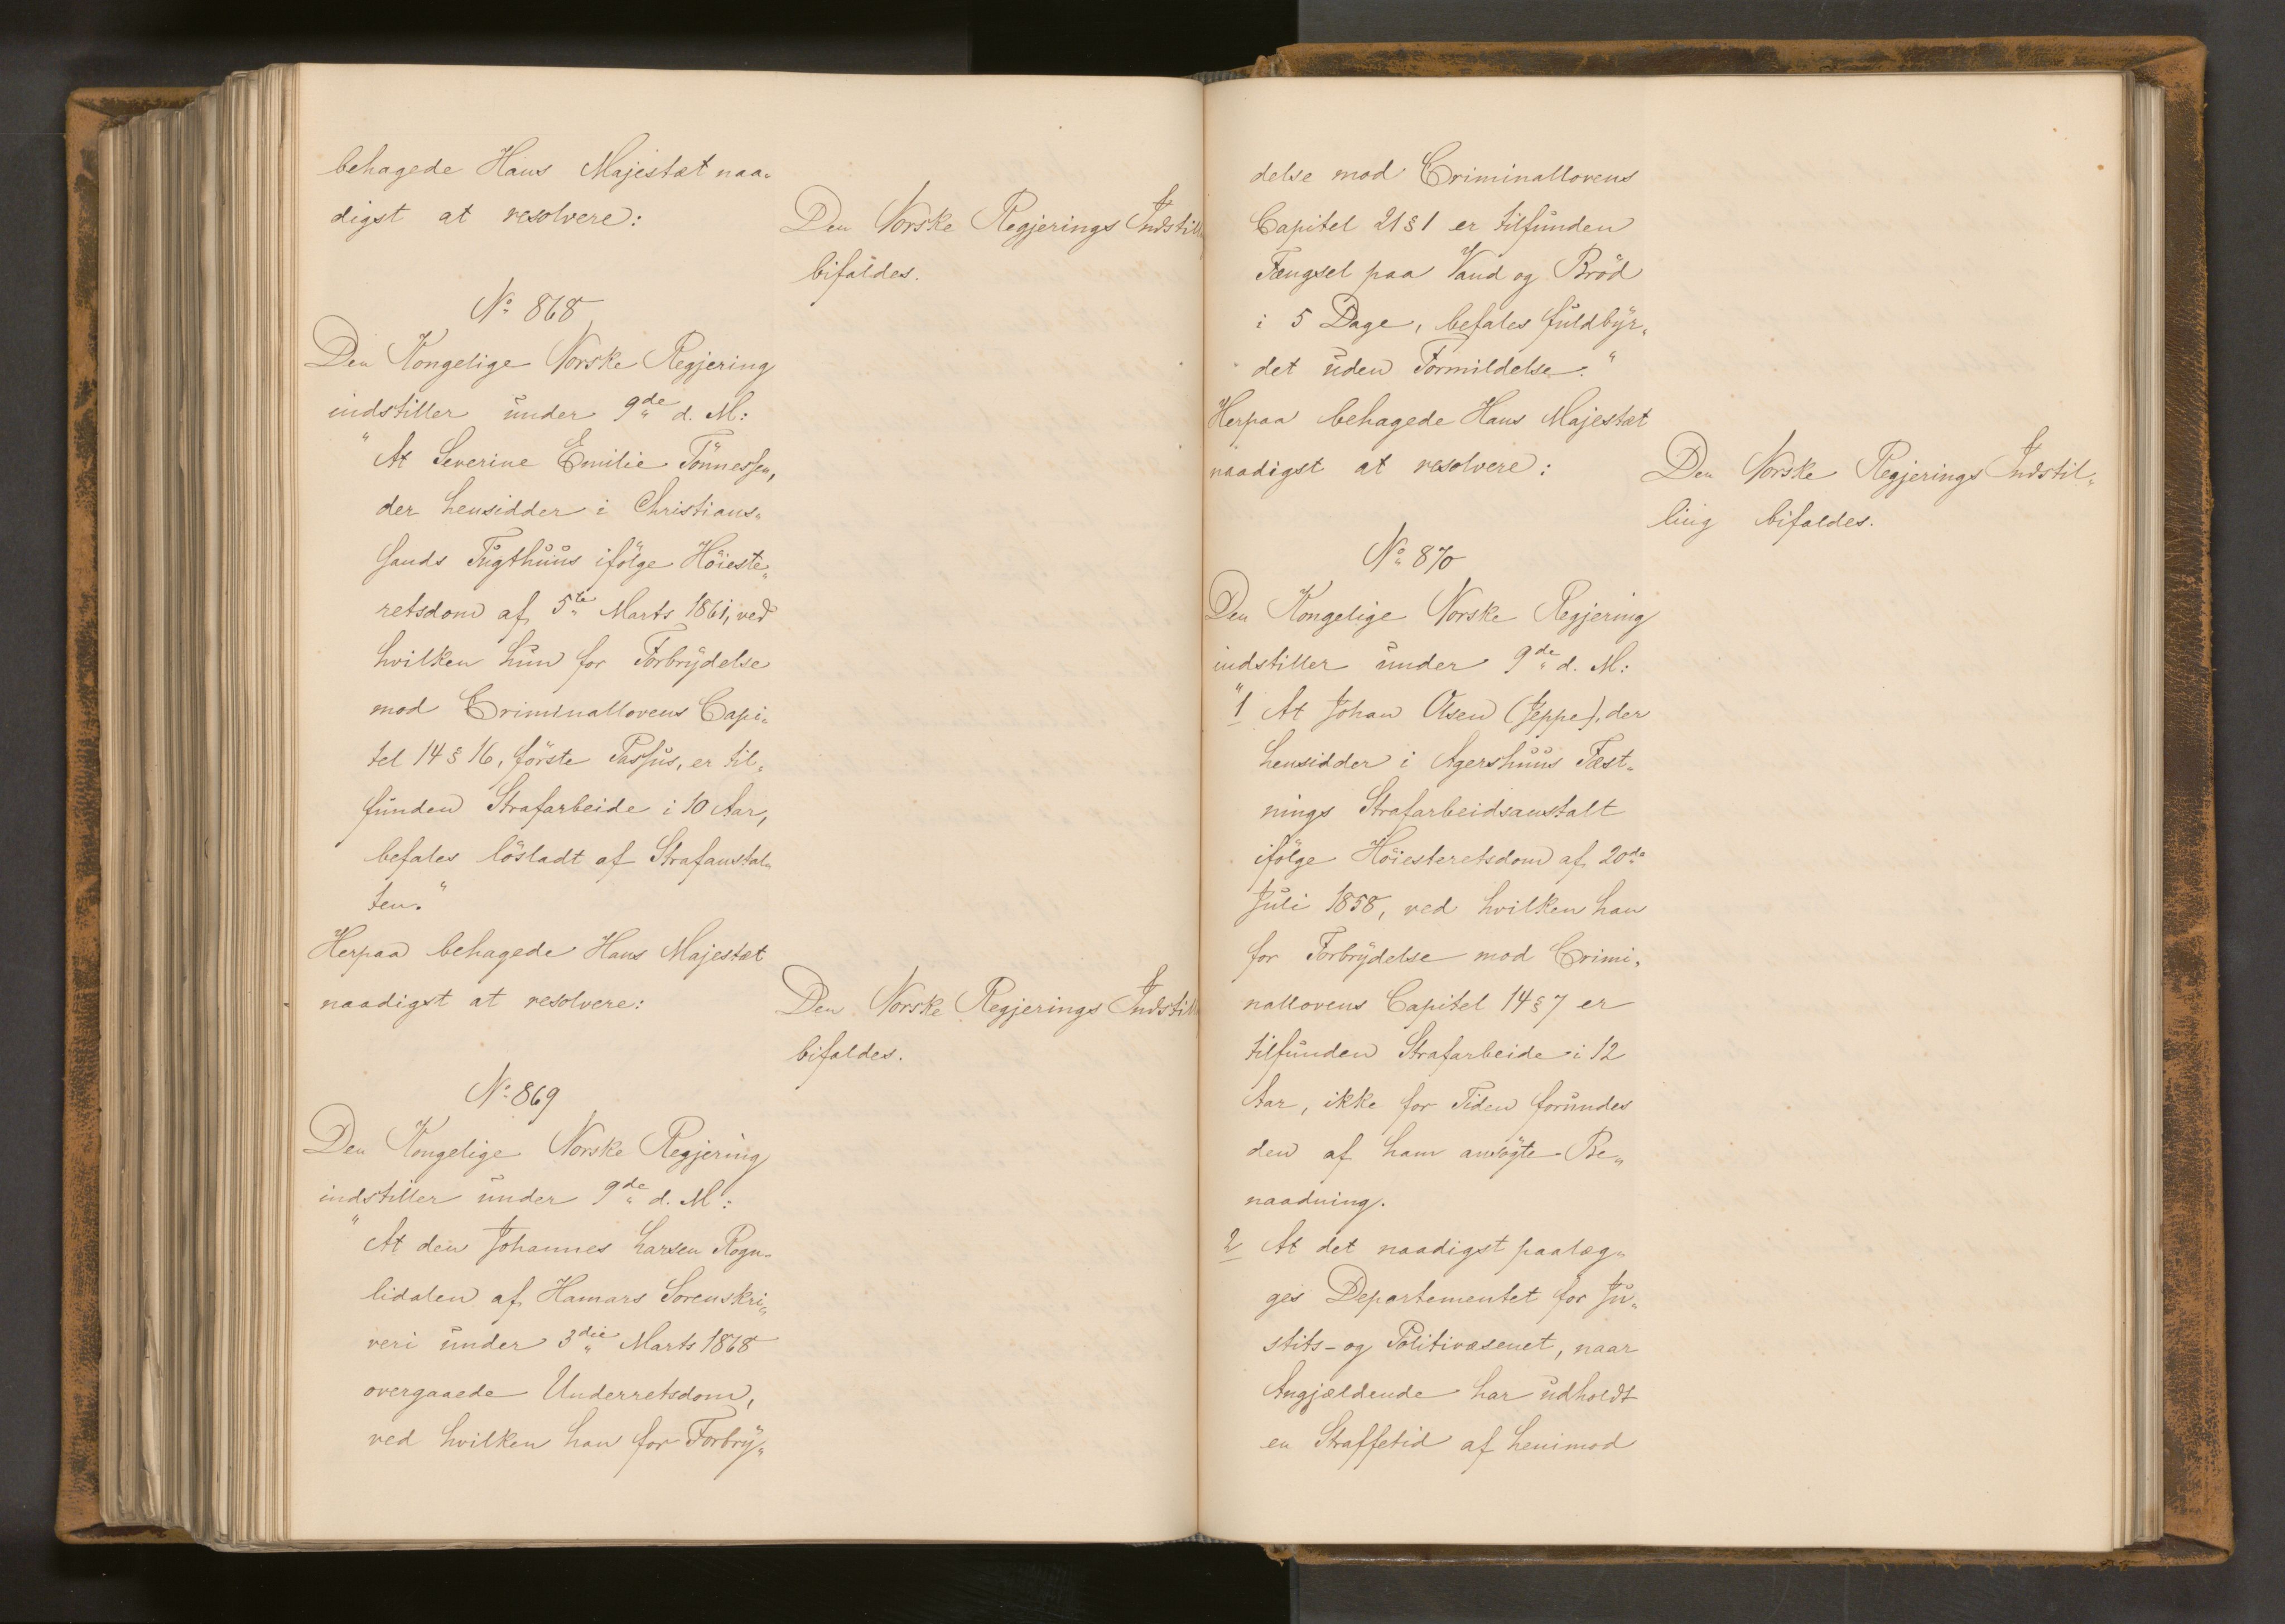 behagede Hans Majestæt naa„
digst at resolvere:
Den Norske Regjerings Indstill
bifaldes.
No 868
Den Kongelige Norske Regjering
indstiller under 9de d. M:
"At Severine Emilie Tönnessen,
der hensidder i Christians„
sands Tugthuus ifölge Höieste„
retsdom af 5te Marts 1861, ved
hvilken hun for Forbrydelse
mod Criminallovens Capi„
tel 14 § 16, förste Passus, er til„
funden Strafarbeide i 10 Aar,
befales lösladt af Strafanstal„
ten."
Herpaa behagede Hans Majestæt
naadigst at resolvere:
Den Norske Regjerings Indstill
bifaldes.
No 869
Den Kongelige Norske Regjering
indstiller under 9de d. M:
"At den Johannes Larsen Rogn„
lidalen af Hamars Sorenskri„
veri under 3die Marts 1868
overgaaede Underretsdom,
ved hvilken han for Forbry„
delse mod Criminallovens
Capitel 21 § 1 er tilfunden
Fængsel paa Vand og Bröd
i 5 Dage, befales fuldbyr„
det uden Formildelse."
Herpaa behagede Hans Majestæt
naadigst at resolvere:
Den Norske Regjerings Indstil„
ling bifaldes.
No 870
Den Kongelige Norske Regjering
indstiller under 9de d. M:
"1 At Johan Olsen (Jeppe), der
hensidder i Agershuus Fæst„
nings Strafarbeidsanstalt
ifölge Höiesteretsdom af 20de
Juli 1858, ved hvilken han
for Forbrydelse mod Crimi„
nallovens Capitel 14 § 7 er
tilfunden Strafarbeide i 12
Aar, ikke for Tiden forundes
den af ham ansögte Be„
naadning.
2 At det naadigst paalæg„
ges Departementet for Ju„
stits- og Politivæsenet, naar
Angjældende har udholdt
en Straffetid af henimod